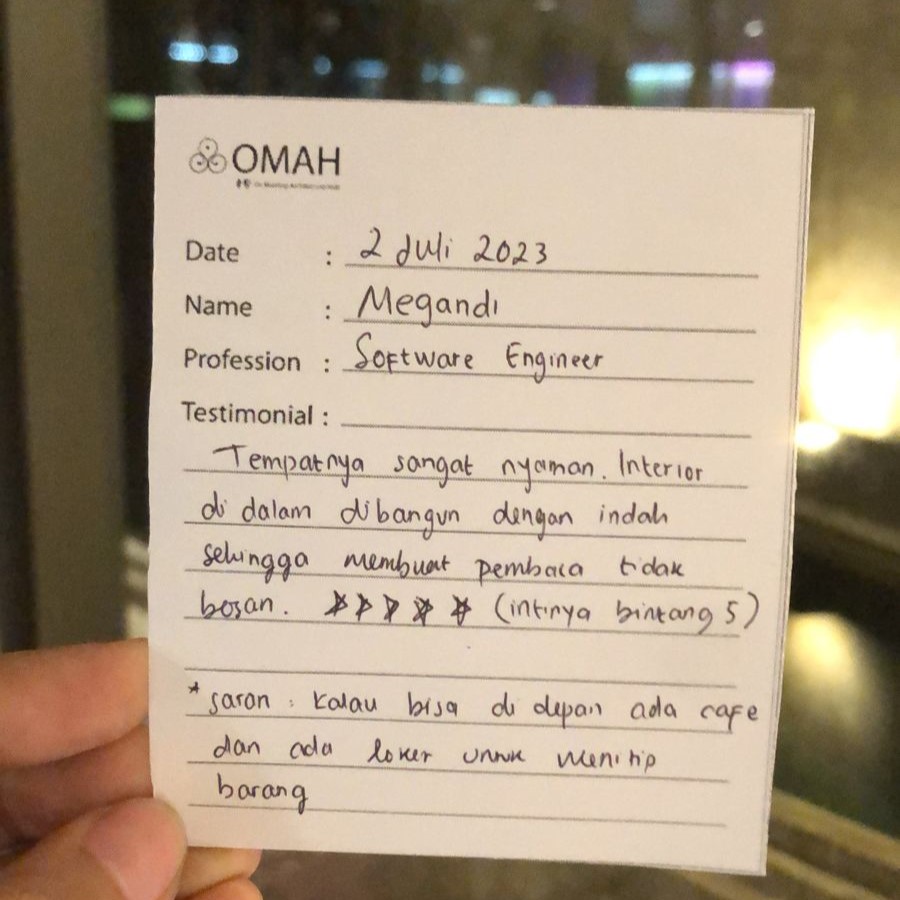 OMAH
Date : 2 Juli 2023
Name : Megandi
Profession : Software Engineer
Testimonial :
Tempatnya sangat nyaman. Interior
di dalam dibangun dengan indah
sehingga membuat pembaca tidak
bosan. ★★★★★ (intinya bintang 5)
* saran : kalau bisa di depan ada cafe
dan ada loker untuk menitip
barang